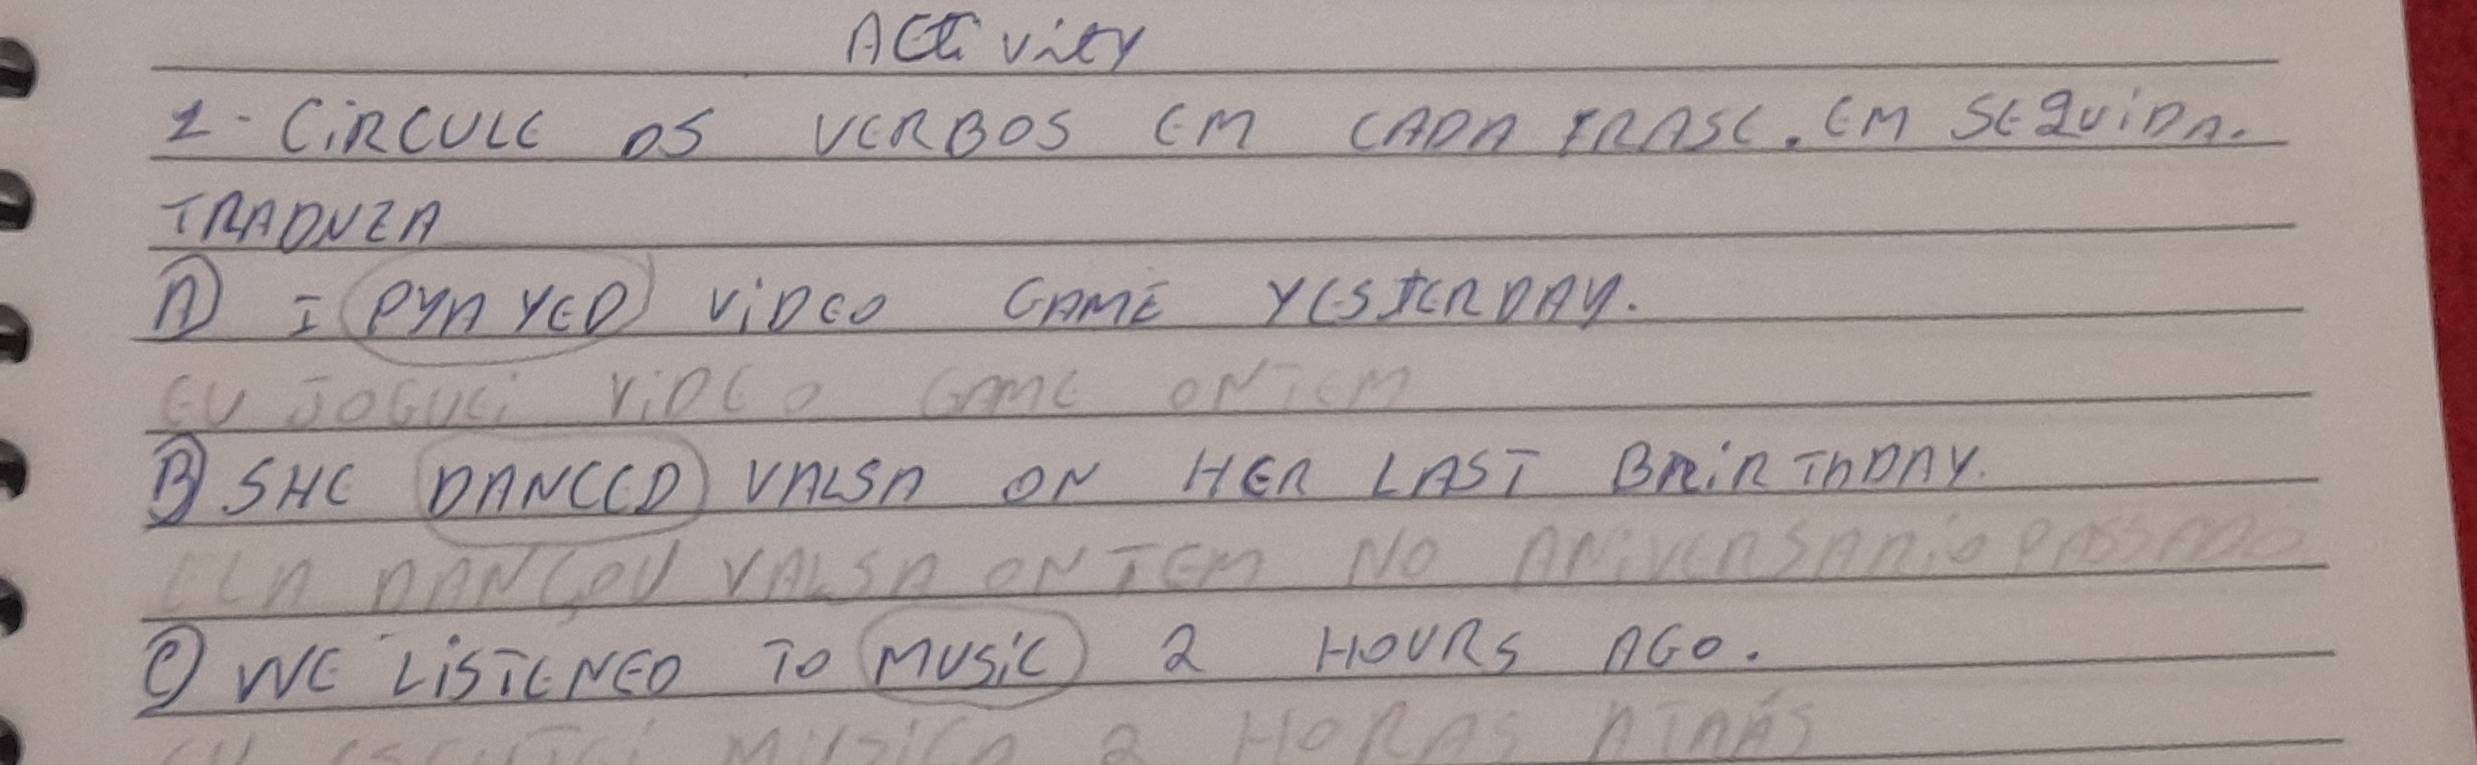 Activity
1- CIRCULE OS VERBOS EM CADA FRASE. EM SEGUIDA.
TRADUZA
A) I PYAYED VIDEO GAME YESTERDAY.
EU JOGUEI VIDEO GAME ONTEM
B) SHE DANCED VALSA ON HER LAST BRIRTHDAY.
ELA DANÇOU VALSA ONTEM NO ANIVERSARIO PASSADO
C) WE LISTENED TO MUSIC 2 HOURS AGO.
EU ESCUTEI MUSICA 2 HORAS ATRÁS